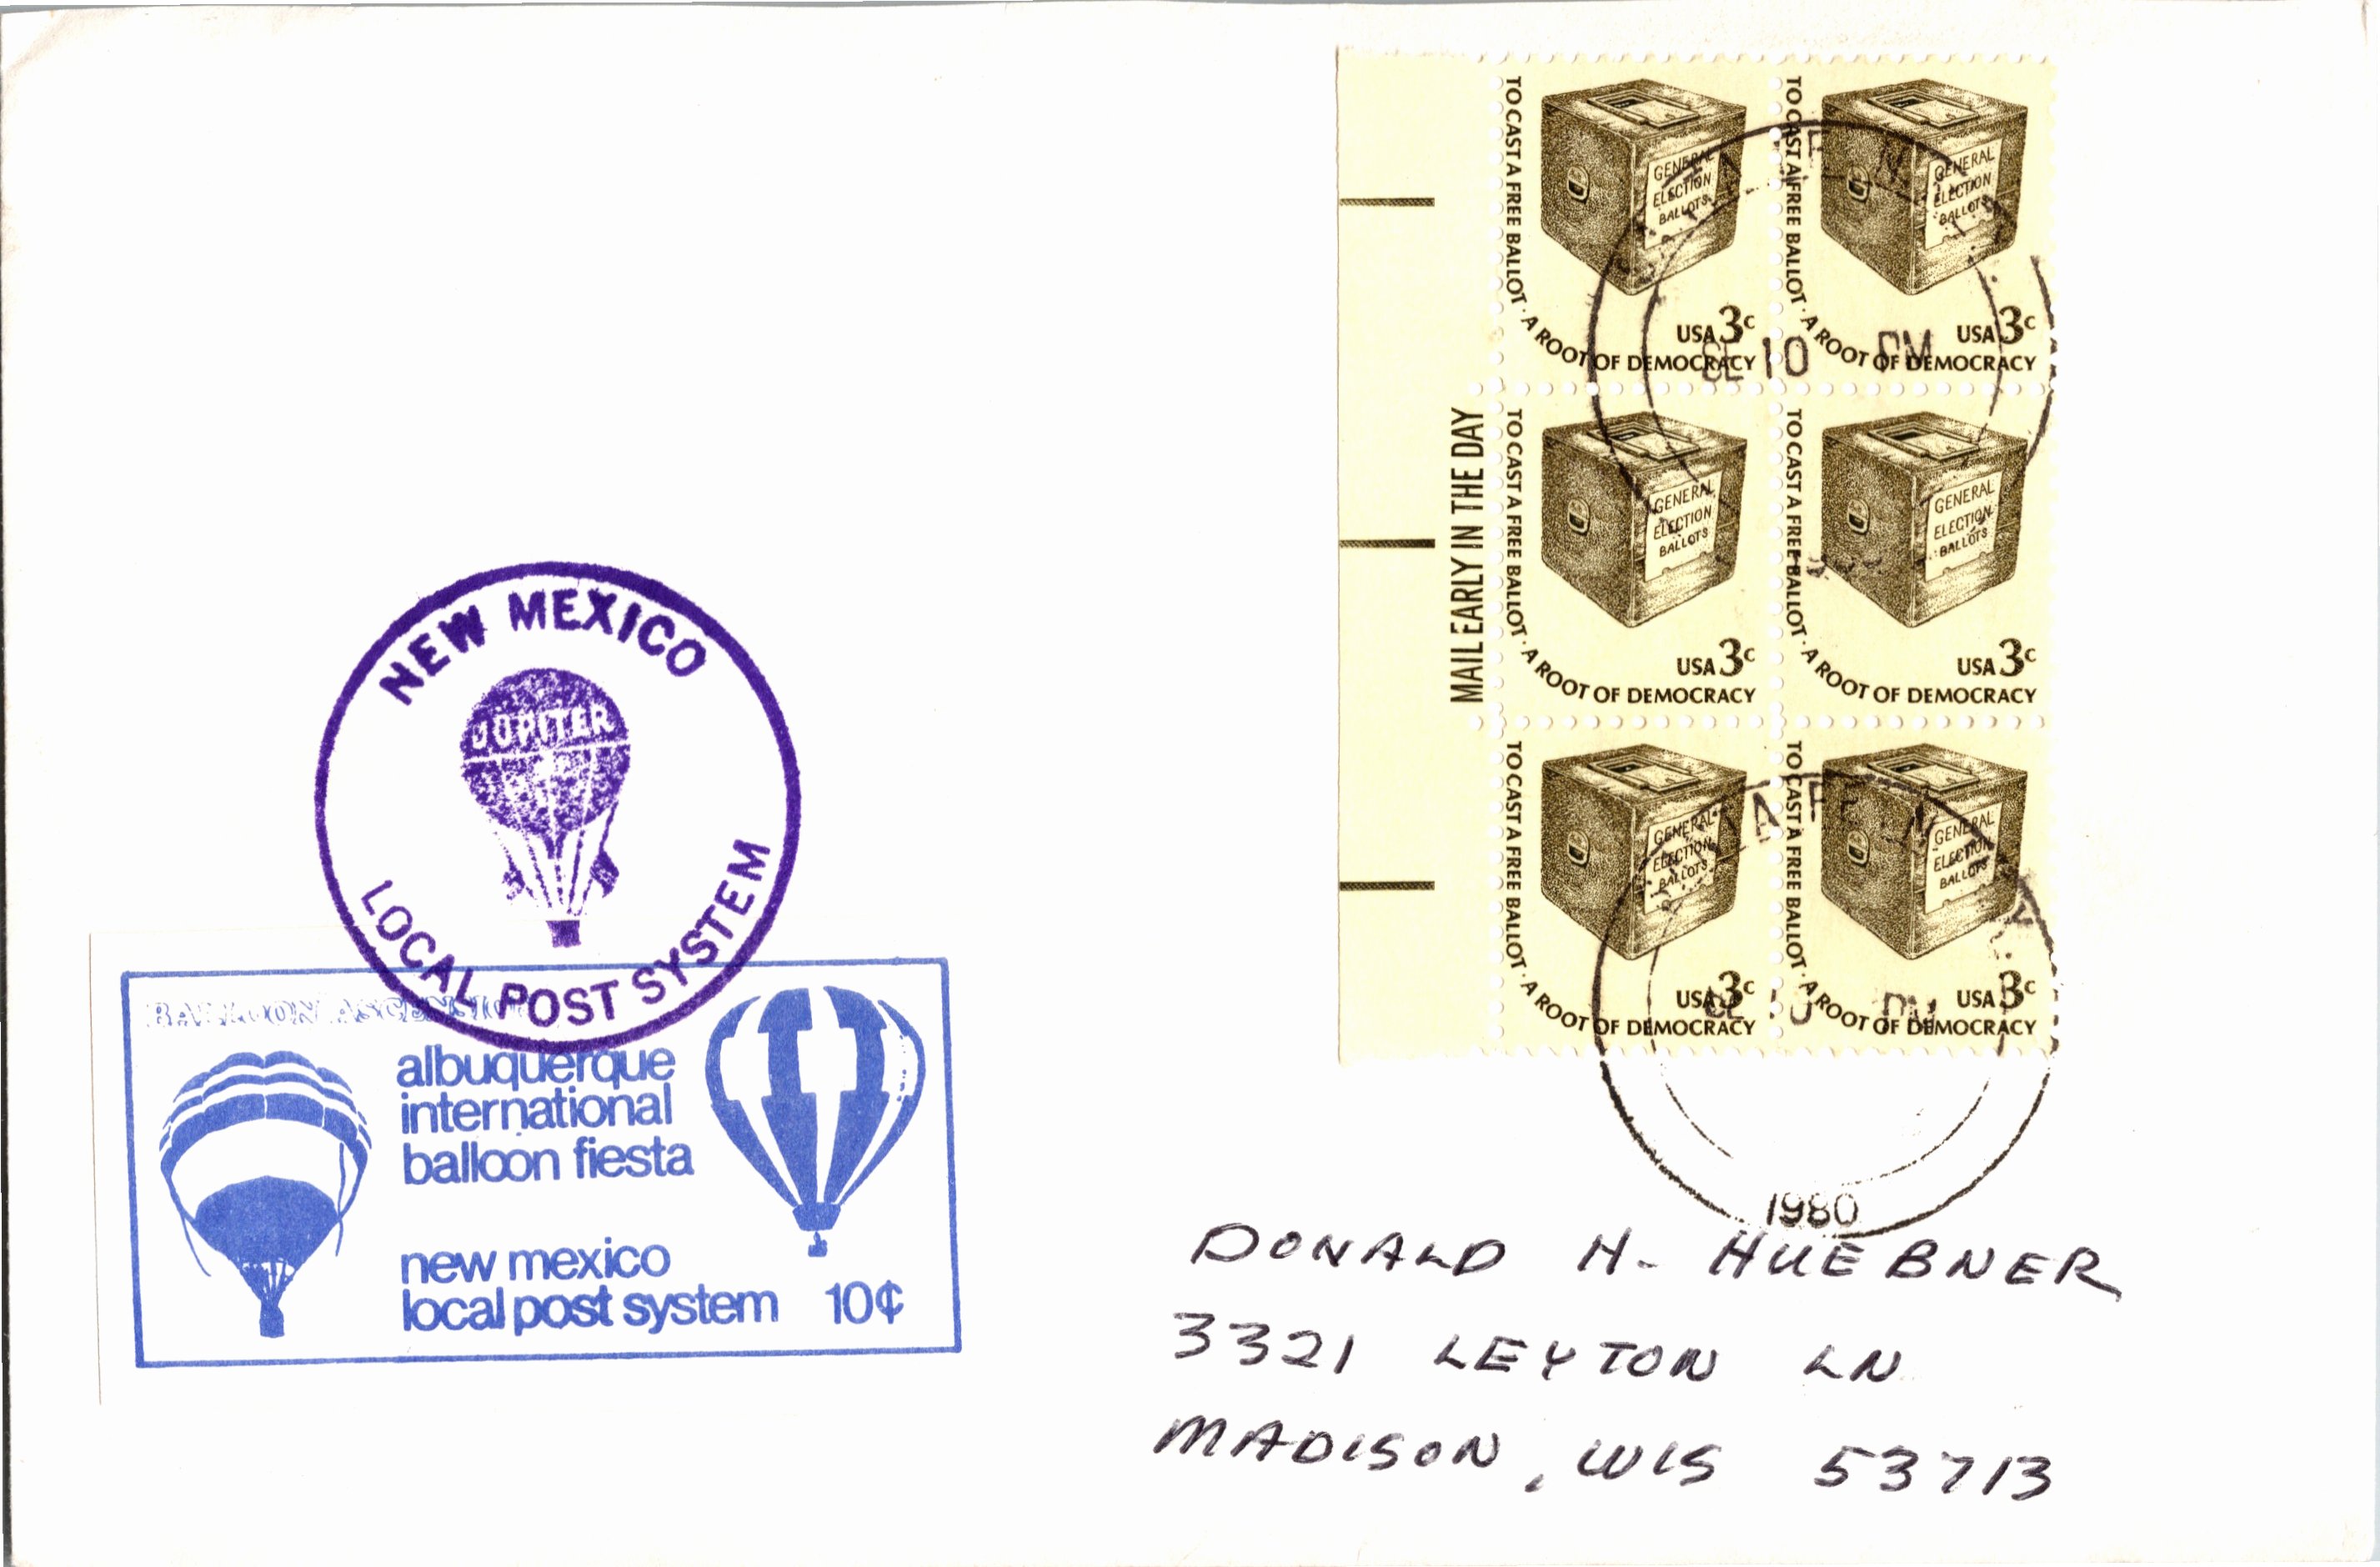 TO CAST A FREE BALLOT · A ROOT OF DEMOCRACY
GENERAL
ELECTION
BALLOTS
USA 3c
TO CAST A FREE BALLOT · A ROOT OF DEMOCRACY
GENERAL
ELECTION
BALLOTS
USA 3c
SE 10 PM
MAIL EARLY IN THE DAY
TO CAST A FREE BALLOT · A ROOT OF DEMOCRACY
GENERAL
ELECTION
BALLOTS
USA 3c
TO CAST A FREE BALLOT · A ROOT OF DEMOCRACY
GENERAL
ELECTION
BALLOTS
USA 3c
TO CAST A FREE BALLOT · A ROOT OF DEMOCRACY
GENERAL
ELECTION
BALLOTS
USA 3c
TO CAST A FREE BALLOT · A ROOT OF DEMOCRACY
GENERAL
ELECTION
BALLOTS
USA 3c
SE 10 PM
1980
NEW MEXICO
JUPITER
LOCAL POST SYSTEM
BALLOON ASCENSION
albuquerque
international
balloon fiesta
new mexico
local post system 10¢
DONALD H. HUEBNER
3321 LEYTON LN
MADISON, WIS 53713